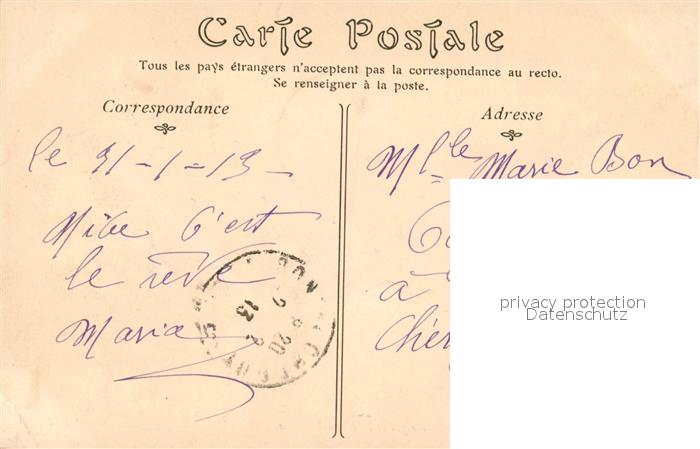 Carte Postale
Tous les pays étrangers n'acceptent pas la correspondance au recto.
Se renseigner à la poste.
Correspondance
Adresse
le 31-1-13
Nice C'est
le rêve
Maria
Mlle Marie Bon
à
privacy protection
Datenschutz